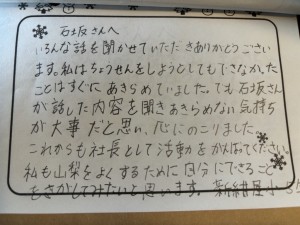 石坂さんへ
いろんな話を聞かせていただきありがとうござい
ます。私はちょうせんをしようとしてもできなかった
ことはすぐにあきらめていました。でも石坂さん
が話した内容を聞きあきらめない気持ち
が大事だと思い、心にのこりました。
これからも社長として活動をがんばってください。
私も山梨をよくするために自分にできること
をさがしてみたいと思います。新紺屋小